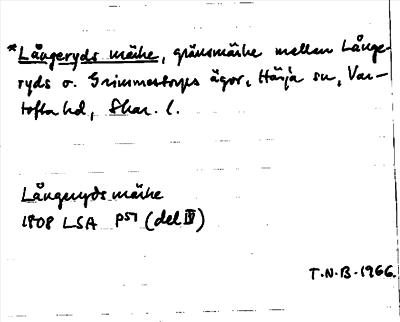 *Långeryds märke, gränsmärke mellan Långe-
ryds o. Grimmestorps ägor, Härja sn, Var-
tofta hd, Skar. l.
Långeryds märke
1808 LSA P51 (del IV)
T.N.B. 1966.